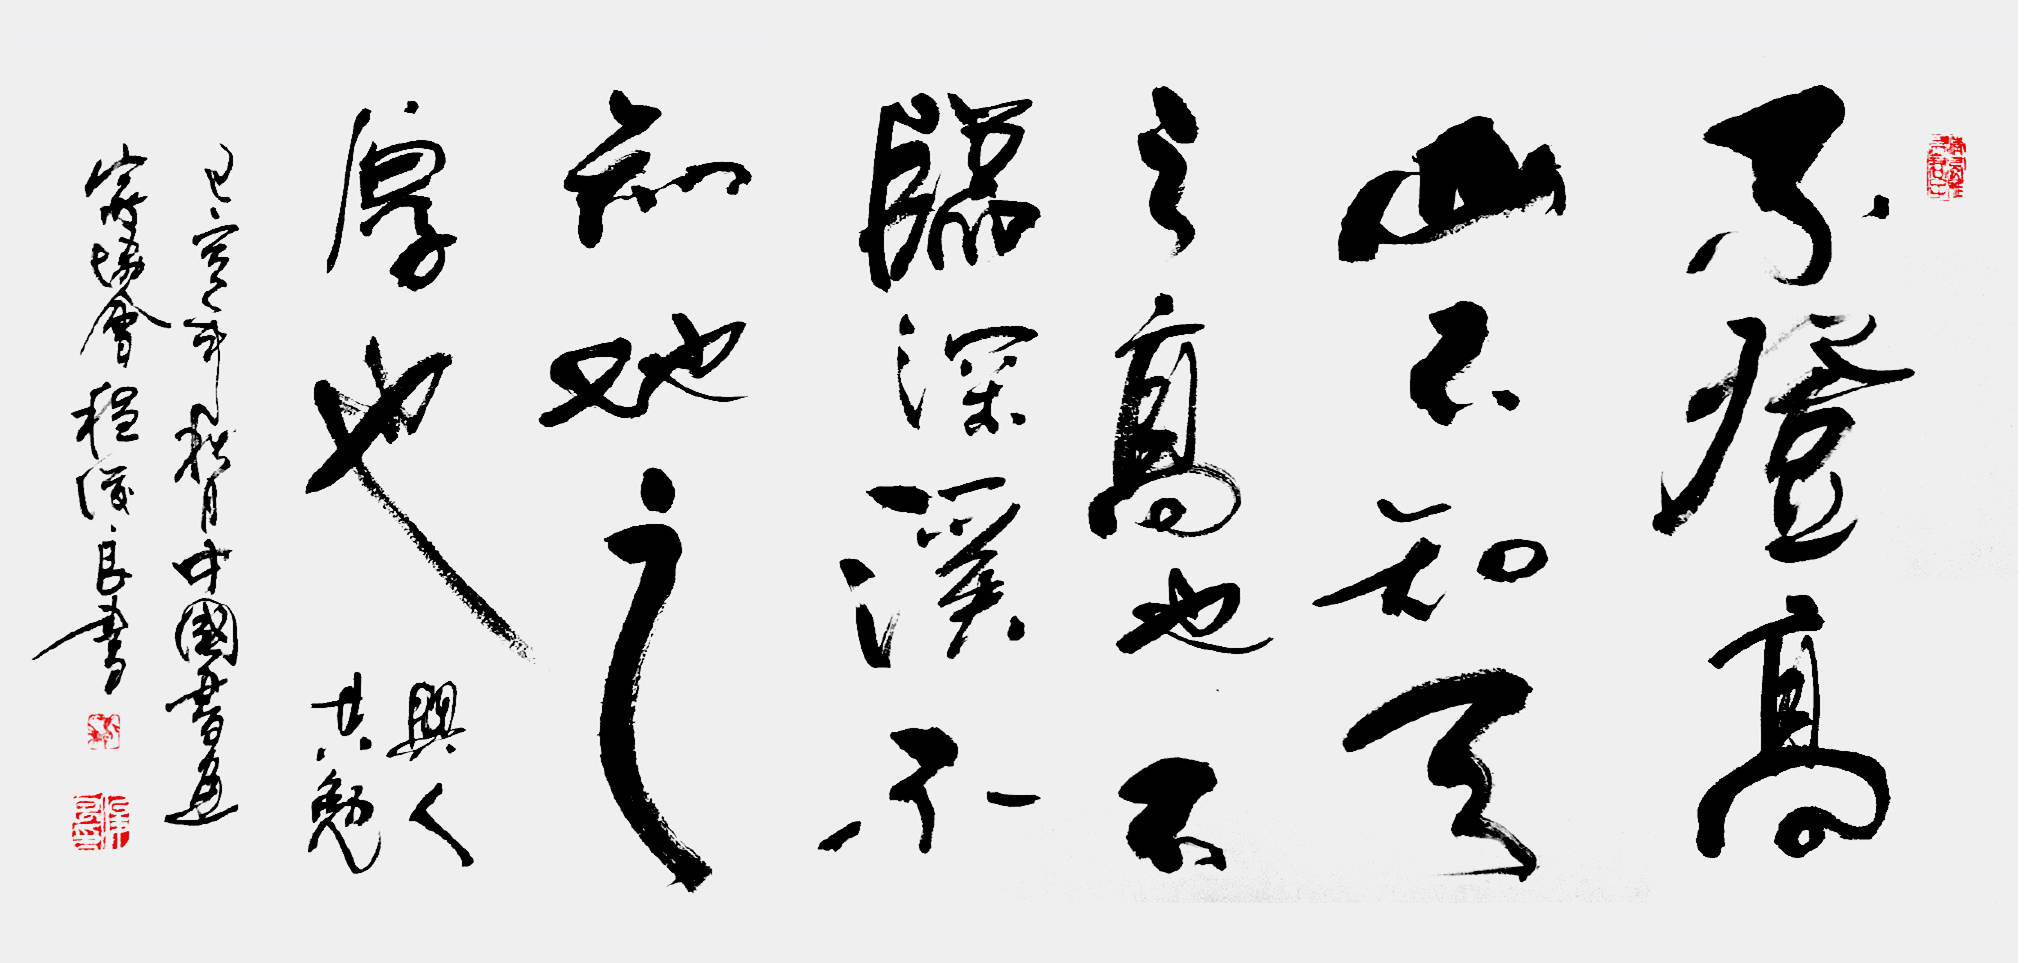 不登高
山不知天
之高也不
臨深溪不
知地之
厚也
與人
共勉
己亥年秋月中國書画
家協會程俊良書